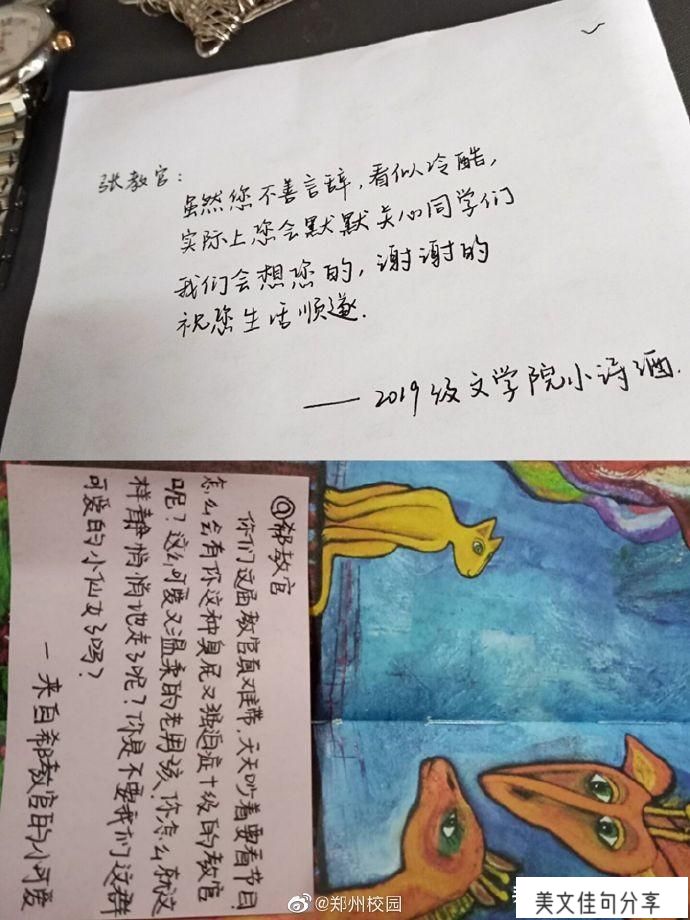 张教官：
虽然您不善言辞，看似冷酷，
实际上您会默默关心同学们
我们会想您的，谢谢的
祝您生活顺遂.
——2019级文学院小诗酒.
@郗教官
你们这届教官真难带，天天吵着要看节目!
怎么会有你这种臭屁又强迫症十级的教官
呢？这么可爱又温柔的老男孩，你怎么就这
样静悄悄地走了呢？你是不要我们这群
可爱的小仙女了吗？
—来自郗教官的小可爱
@郑州校园
美文佳句分享